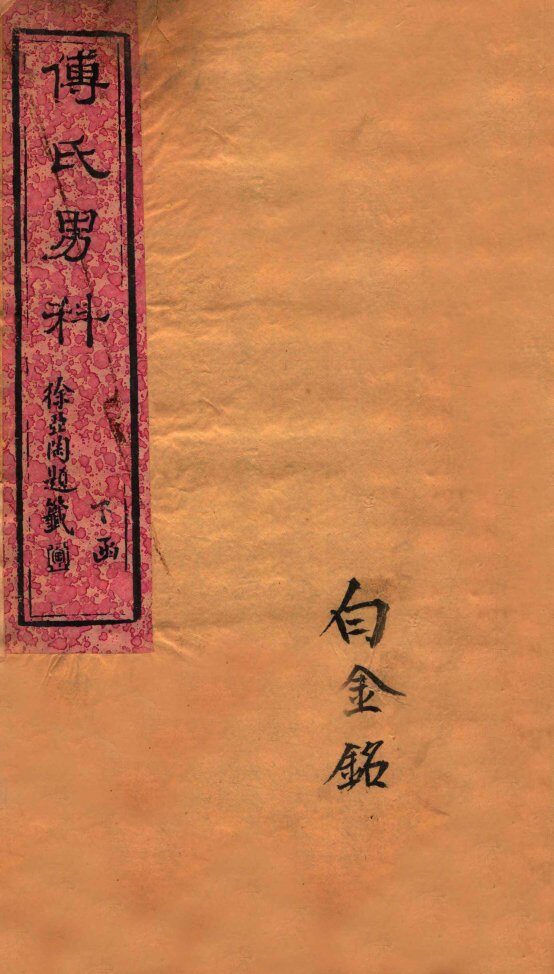 傅氏男科
徐亞陶題籤
下函
白金銘